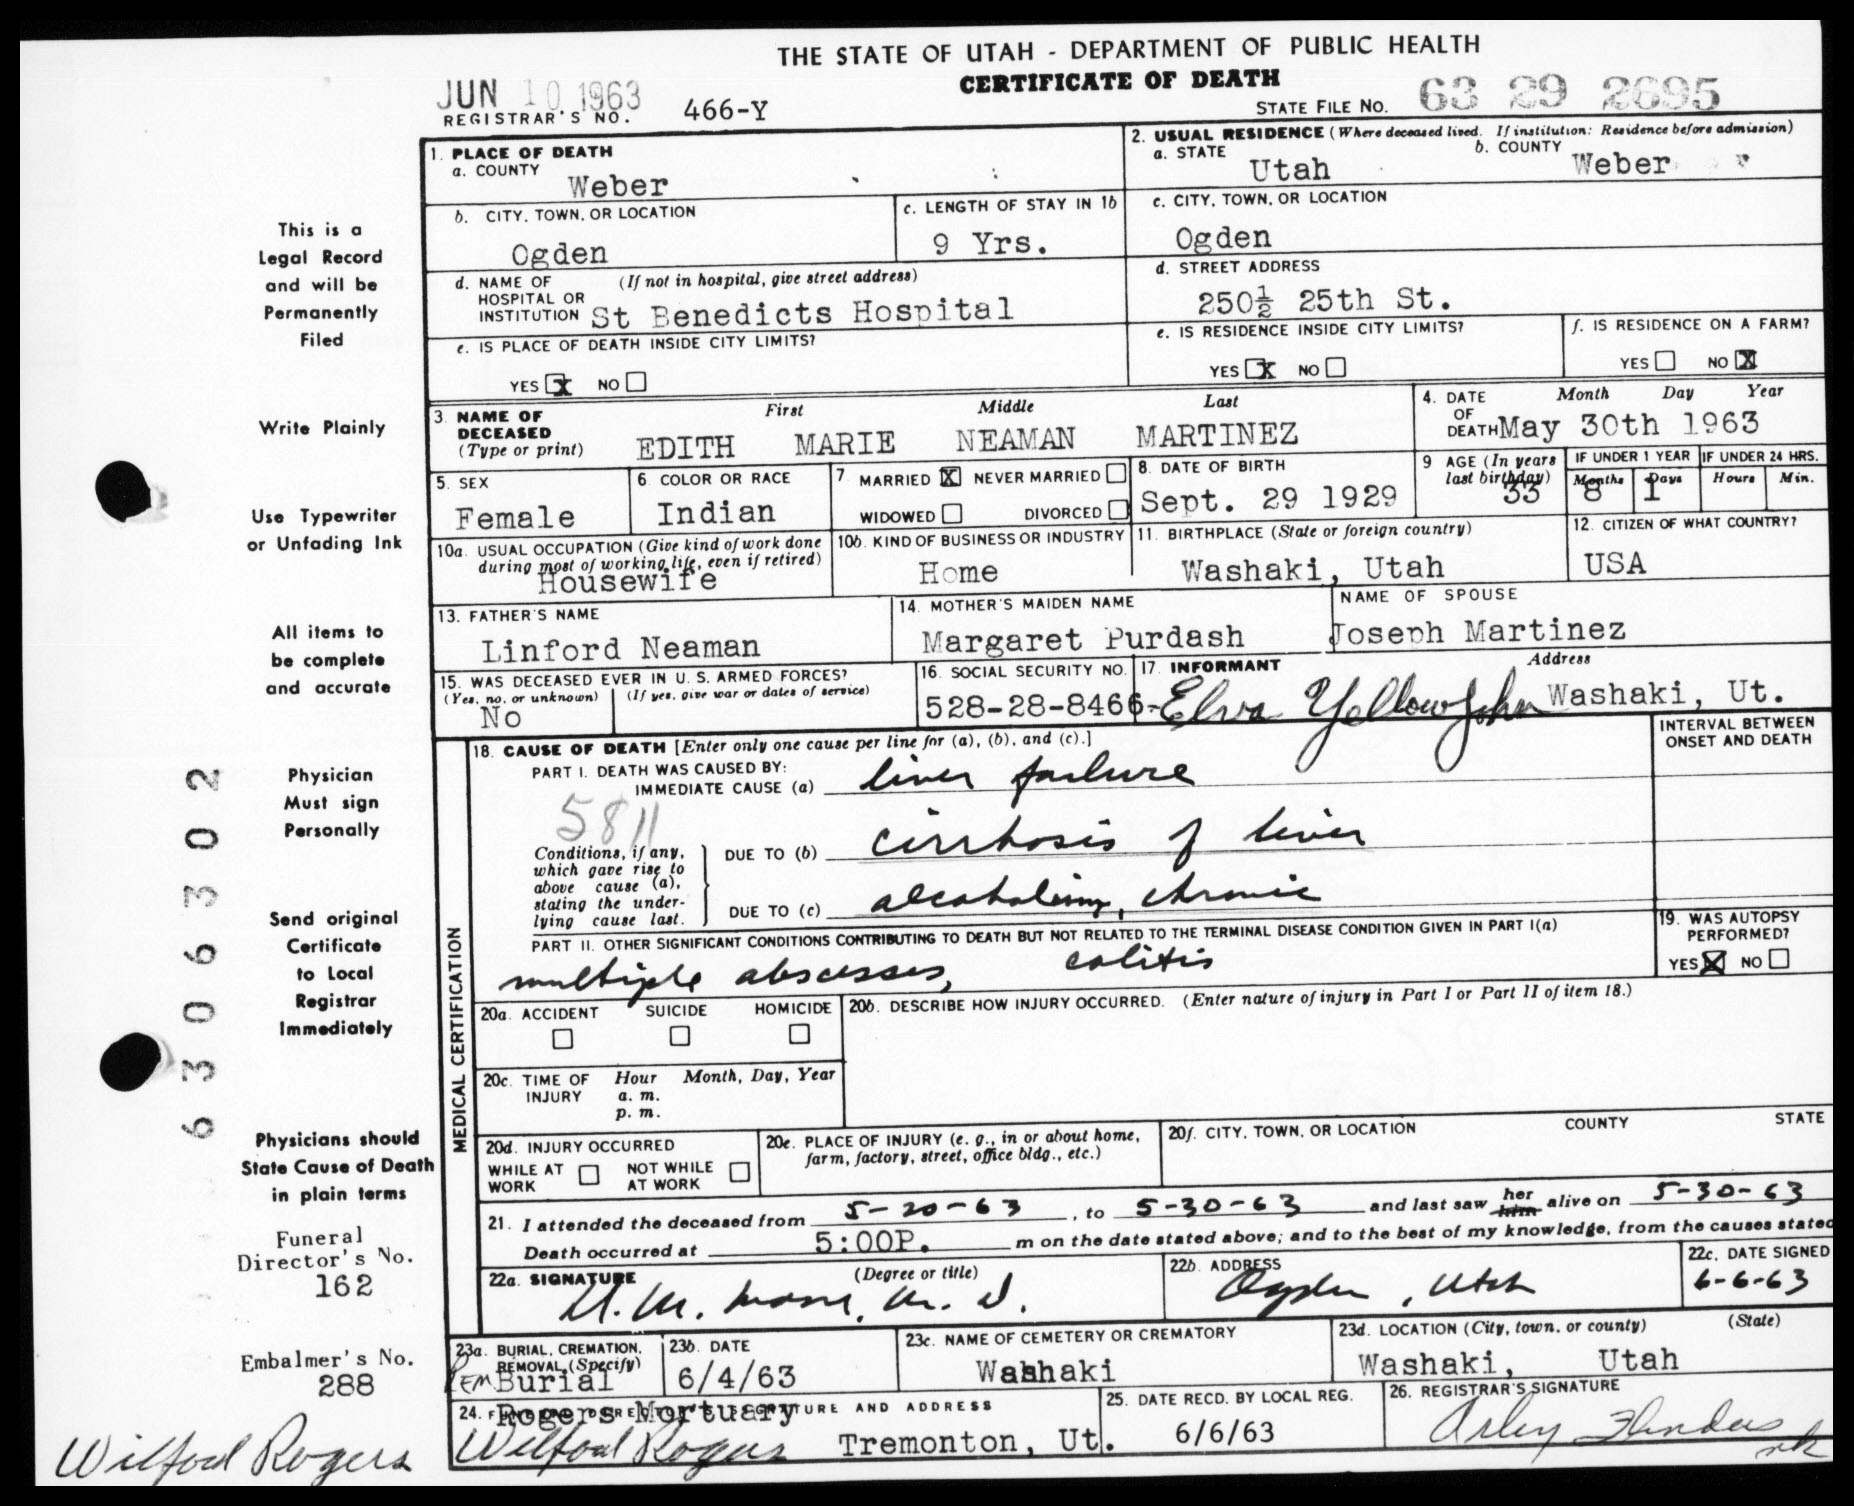 THE STATE OF UTAH - DEPARTMENT OF PUBLIC HEALTH
CERTIFICATE OF DEATH
JUN 10 1963
REGISTRAR'S NO. 466-Y
STATE FILE NO. 63 29 2695
1. PLACE OF DEATH
a. COUNTY
Weber
2. USUAL RESIDENCE (Where deceased lived. If institution: Residence before admission)
a. STATE Utah
b. COUNTY Weber
b. CITY, TOWN, OR LOCATION
Ogden
c. LENGTH OF STAY IN 1b
9 Yrs.
c. CITY, TOWN, OR LOCATION
Ogden
d. NAME OF HOSPITAL OR INSTITUTION (If not in hospital, give street address)
St Benedicts Hospital
d. STREET ADDRESS
250½ 25th St.
e. IS PLACE OF DEATH INSIDE CITY LIMITS?
YES X NO
e. IS RESIDENCE INSIDE CITY LIMITS?
YES X NO
f. IS RESIDENCE ON A FARM?
YES NO X
3. NAME OF DECEASED (Type or print)
First Middle Last
EDITH MARIE NEAMAN MARTINEZ
4. DATE OF DEATH Month Day Year
May 30th 1963
5. SEX
Female
6. COLOR OR RACE
Indian
7. MARRIED X NEVER MARRIED
WIDOWED DIVORCED
8. DATE OF BIRTH
Sept. 29 1929
9. AGE (In years last birthday)
33
IF UNDER 1 YEAR
Months Days
8 1
IF UNDER 24 HRS.
Hours Min.
10a. USUAL OCCUPATION (Give kind of work done during most of working life, even if retired)
Housewife
10b. KIND OF BUSINESS OR INDUSTRY
Home
11. BIRTHPLACE (State or foreign country)
Washaki, Utah
12. CITIZEN OF WHAT COUNTRY?
USA
13. FATHER'S NAME
Linford Neaman
14. MOTHER'S MAIDEN NAME
Margaret Purdash
NAME OF SPOUSE
Joseph Martinez
15. WAS DECEASED EVER IN U. S. ARMED FORCES?
(Yes, no, or unknown) (If yes, give war or dates of service)
No
16. SOCIAL SECURITY NO.
528-28-8466
17. INFORMANT Address
Elva Yellowjohn Washaki, Ut.
MEDICAL CERTIFICATION
18. CAUSE OF DEATH [Enter only one cause per line for (a), (b), and (c).]
INTERVAL BETWEEN ONSET AND DEATH
PART I. DEATH WAS CAUSED BY:
IMMEDIATE CAUSE (a) liver failure
5811
Conditions, if any, which gave rise to above cause (a), stating the underlying cause last.
DUE TO (b) cirrhosis of liver
DUE TO (c) alcoholism, chronic
PART II. OTHER SIGNIFICANT CONDITIONS CONTRIBUTING TO DEATH BUT NOT RELATED TO THE TERMINAL DISEASE CONDITION GIVEN IN PART I(a)
multiple abscesses, colitis
19. WAS AUTOPSY PERFORMED?
YES X NO
20a. ACCIDENT SUICIDE HOMICIDE
20b. DESCRIBE HOW INJURY OCCURRED. (Enter nature of injury in Part I or Part II of item 18.)
20c. TIME OF INJURY Hour Month, Day, Year
a. m.
p. m.
20d. INJURY OCCURRED
WHILE AT WORK NOT WHILE AT WORK
20e. PLACE OF INJURY (e. g., in or about home, farm, factory, street, office bldg., etc.)
20f. CITY, TOWN, OR LOCATION COUNTY STATE
21. I attended the deceased from 5-20-63, to 5-30-63 and last saw her him alive on 5-30-63
Death occurred at 5:00P. m on the date stated above; and to the best of my knowledge, from the causes stated
22a. SIGNATURE (Degree or title)
M. D.
22b. ADDRESS
Ogden, Utah
22c. DATE SIGNED
6-6-63
23a. BURIAL, CREMATION, REMOVAL (Specify)
Rem Burial
23b. DATE
6/4/63
23c. NAME OF CEMETERY OR CREMATORY
Washaki
23d. LOCATION (City, town, or county) (State)
Washaki, Utah
24. FUNERAL DIRECTOR'S SIGNATURE AND ADDRESS
Rogers Mortuary
Wilford Rogers Tremonton, Ut.
25. DATE RECD. BY LOCAL REG.
6/6/63
26. REGISTRAR'S SIGNATURE
Arley Flinders
nk
This is a
Legal Record
and will be
Permanently
Filed
Write Plainly
Use Typewriter
or Unfading Ink
All items to
be complete
and accurate
Physician
Must sign
Personally
Send original
Certificate
to Local
Registrar
Immediately
Physicians should
State Cause of Death
in plain terms
Funeral
Director's No.
162
Embalmer's No.
288
Wilford Rogers
6306302